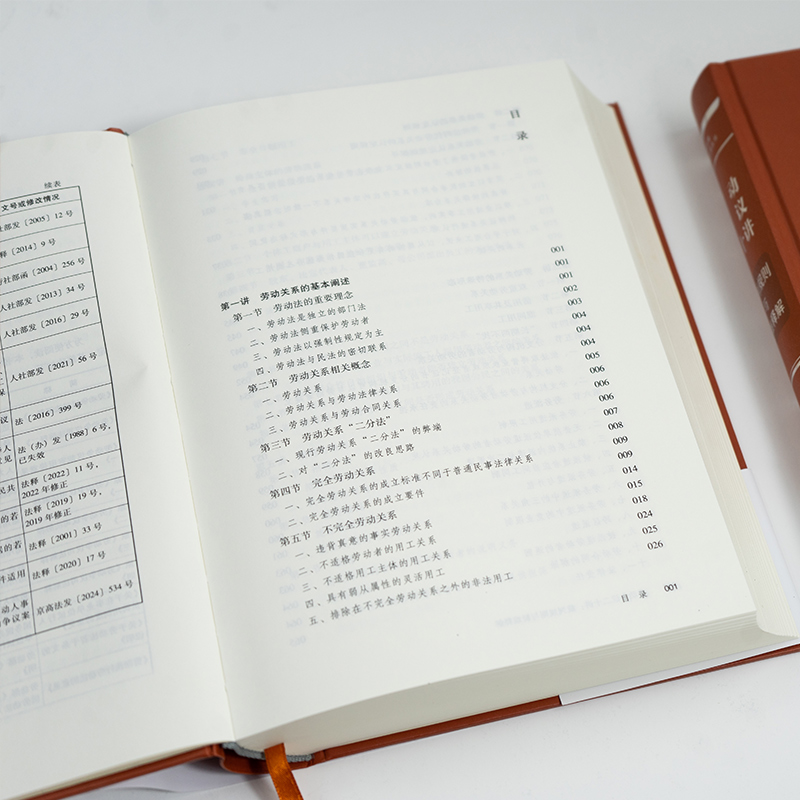 续表
文号或修改情况
社部发〔2005〕12 号
〔2014〕9 号
社部函〔2004〕256 号
人社部发〔2013〕34 号
人社部发〔2016〕29 号
人社部发〔2021〕56 号
保
议
法〔2016〕399 号
人
意见
法（办）发〔1988〕6 号，
已失效
民共
法释〔2022〕11 号，
2022 年修正
的若
法释〔2019〕19 号，
2019 年修正
的若
法释〔2001〕33 号
件适用
法释〔2020〕17 号
动人事
争议案
京高法发〔2024〕534 号
目
录
第一讲 劳动关系的基本阐述 001
第一节 劳动法的重要理念 001
一、劳动法是独立的部门法 001
二、劳动法侧重保护劳动者 002
三、劳动法以强制性规定为主 003
四、劳动法与民法的密切联系 004
第二节 劳动关系相关概念 004
一、劳动关系 004
二、劳动关系与劳动法律关系 005
三、劳动关系与劳动合同关系 006
第三节 劳动关系“二分法” 006
一、现行劳动关系“二分法”的弊端 006
二、对“二分法”的改良思路 007
第四节 完全劳动关系 008
一、完全劳动关系的成立标准不同于普通民事法律关系 009
二、完全劳动关系的成立要件 009
第五节 不完全劳动关系 014
一、违背真意的事实劳动关系 015
二、不适格劳动者的用工关系 018
三、不适格用工主体的用工关系 024
四、具有弱从属性的灵活用工 025
五、排除在不完全劳动关系之外的非法用工 026
目 录 001
动汉讲
规则
解